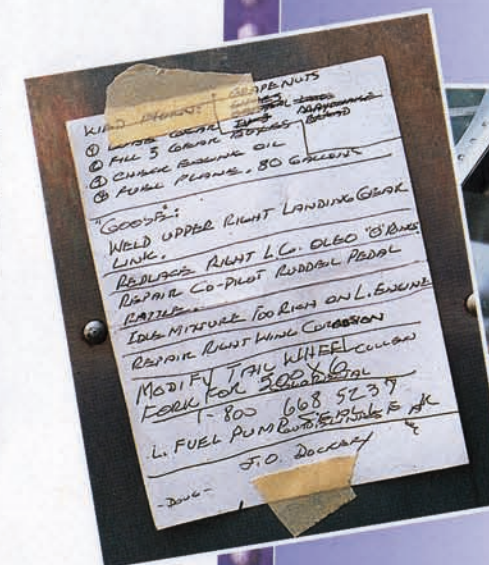 GRAPENUTS
① LUBE GEAR
② FILL 3 GEAR BOXES BREAD
③ CHECK ENGINE OIL
④ FUEL PLANE. 80 GALLONS
"GOOSE":
WELD UPPER RIGHT LANDING GEAR
LINK.
REPLACE RIGHT L.G. OLEO "O" RINGS
REPAIR CO-PILOT RUDDER PEDAL
IDLE MIXTURE TOO RICH ON L. ENGINE
REPAIR RIGHT WING CORROSION
MODIFY TAIL WHEEL
FORK FOR 500 X 6
1-800 668 5237
L. FUEL PUMP
J.O. DOCKERY
-DOUG-